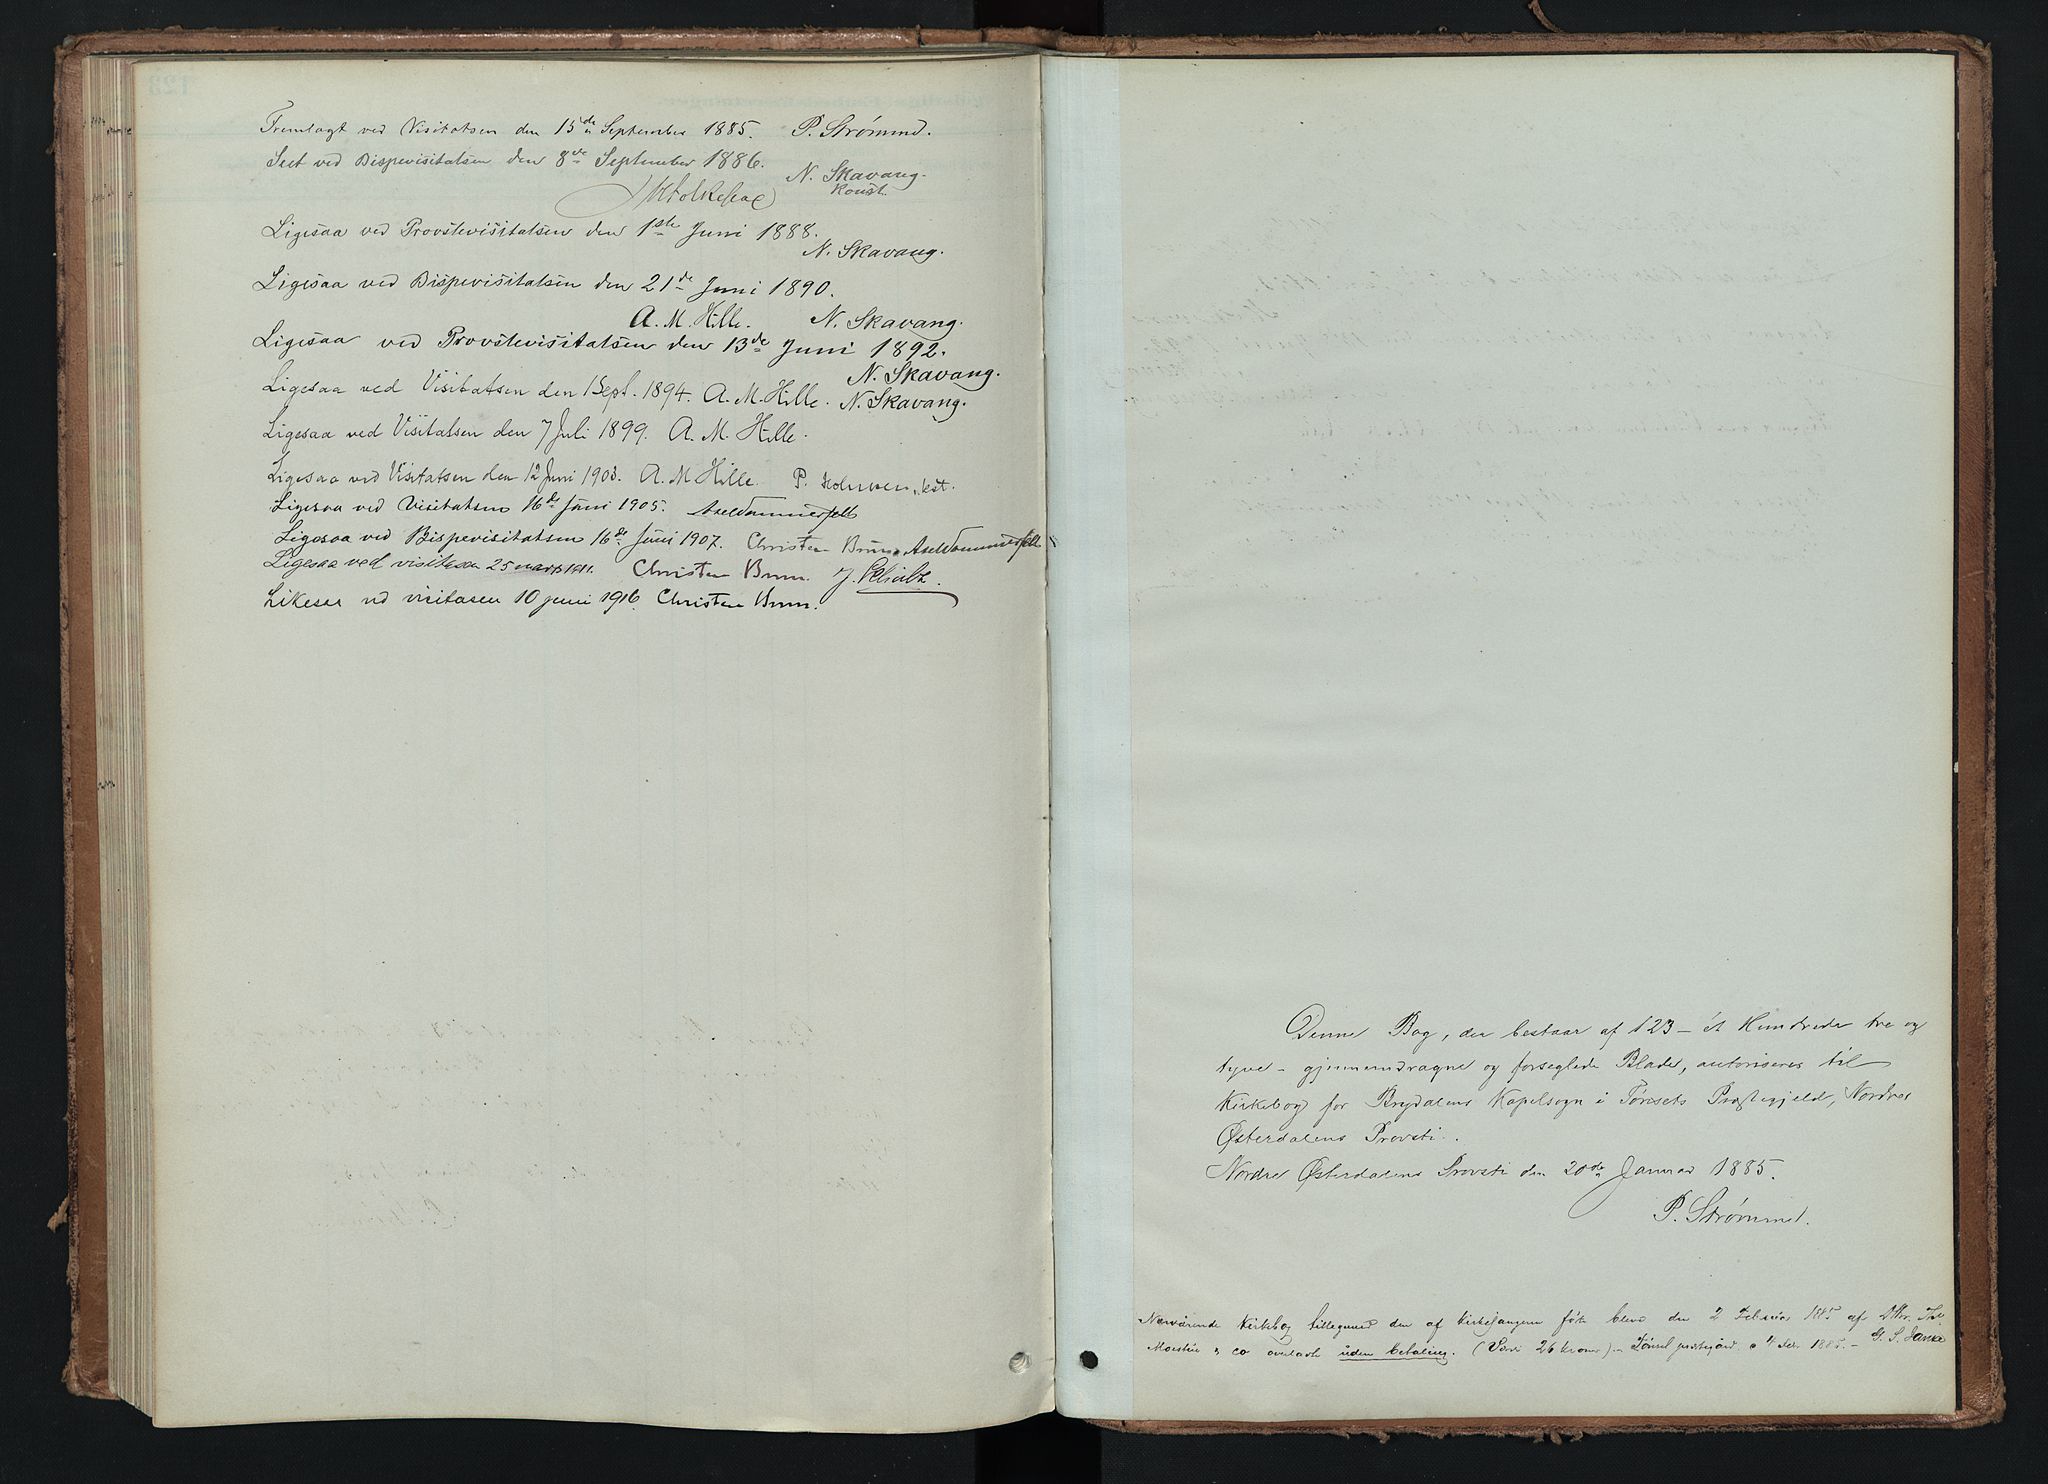 Fremlagt ved Visitatsen den 15de September 1885. P. Strømme.
Seet ved Bispevisitatsen den 8de September 1886.
N. Skavang.
Konst.
Ligesaa ved Provstevisitatsen den 1ste Juni 1888.
N. Skavang.
Ligesaa ved Bispevisitatsen den 21de Juni 1890.
A. M. Hille. N. Skavang.
Ligesaa ved Provstevisitatsen den 13de Juni 1892.
N. Skavang.
Ligesaa ved Visitatsen den 1 Sept. 1894. A. M. Hille. N. Skavang.
Ligesaa ved Visitatsen den 7 Juli 1899. A. M. Hille.
Ligesaa ved Visitatsen den 12 Juni 1903. A. M. Hille. P. Holmsen, kst.
Ligesaa ved Visitatsen 16de Juni 1905. Axel Sommerfelt
Ligesaa ved Bispevisitatsen 16de Juni 1907. Christen Brun. Axel Sommerfelt
Ligesaa ved visitasen 25 mars 1911. Christen Brun. J.
Likesaa ved visitasen 10 juni 1916. Christen Brun.
Denne Bog, der bestaar af 123 – ét Hundrede tre og
tyve – gjennemdragne og forseglede Blade, autoriseres til
Kirkebog for Brydalens Kapelsogn i Tønsets Præstegjeld, Nordre
Østerdalens Provsti.
Nordre Østerdalens Provsti den 20de Januar 1885.
P. Strømme.
Nærværende Kirkebog den af blev den 2 Februar 1885 af
& co overladt uden betaling. (Værdi 26 kroner) – Tønset præstegård 4 Febr. 1885. –